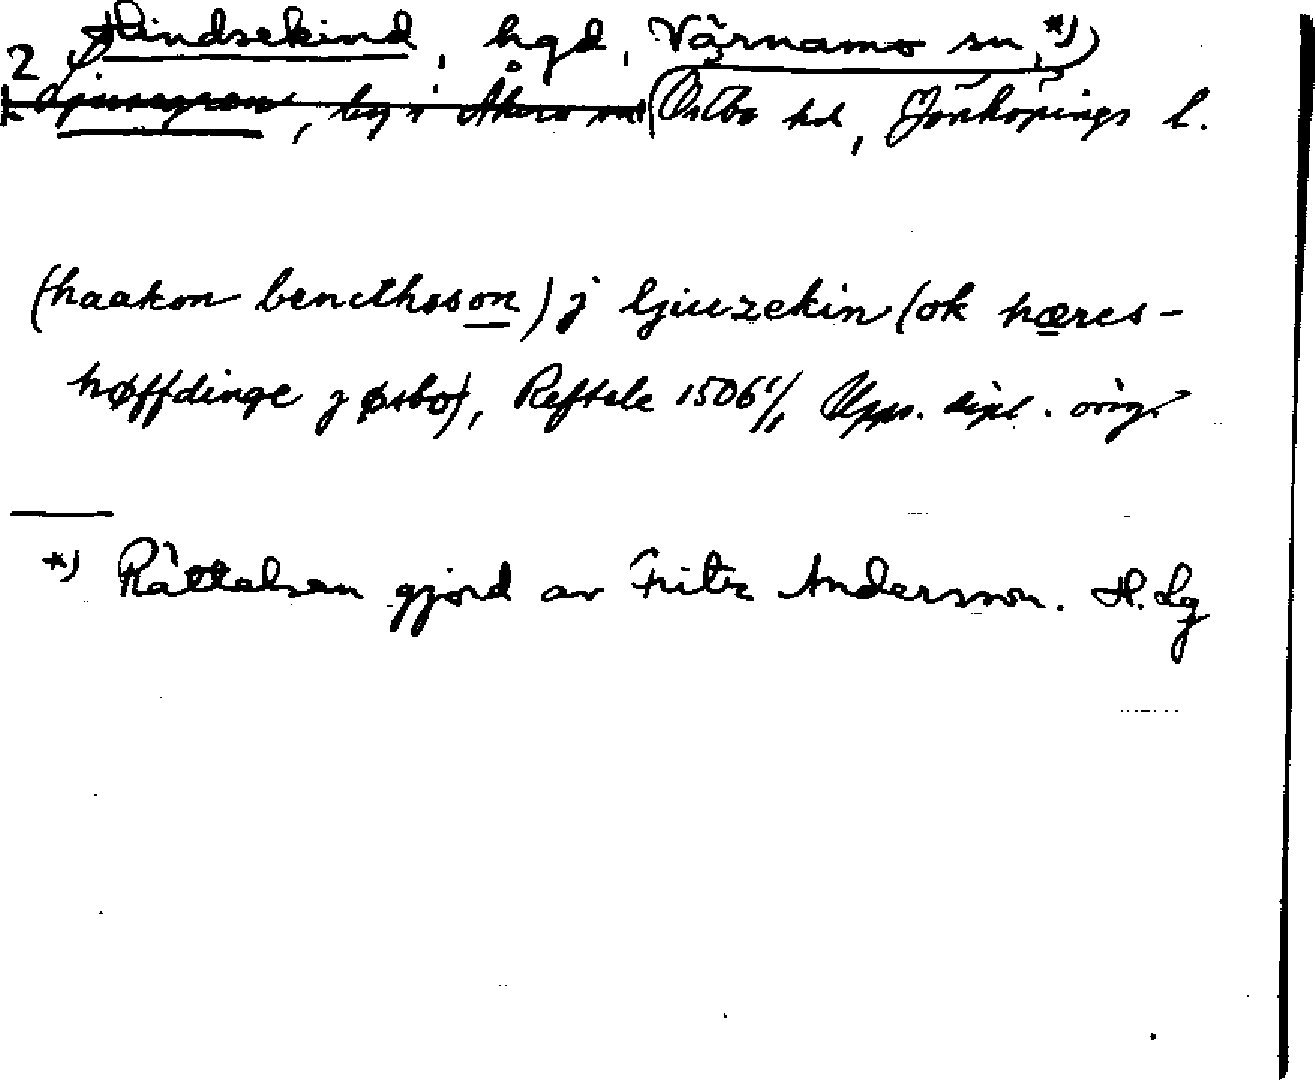 Hindsekind, hgd, Värnamo sn *)
2 by i Åkers sn Östbo hd, Jönköpings l.
(haakon bencthsson) j ljuuzekin (ok hæres-
høffdinge j øsbo), Reftele 1506 Upps. dipl. orig.
*) Rättelsen gjord av Fritz Andersson. H. Lg